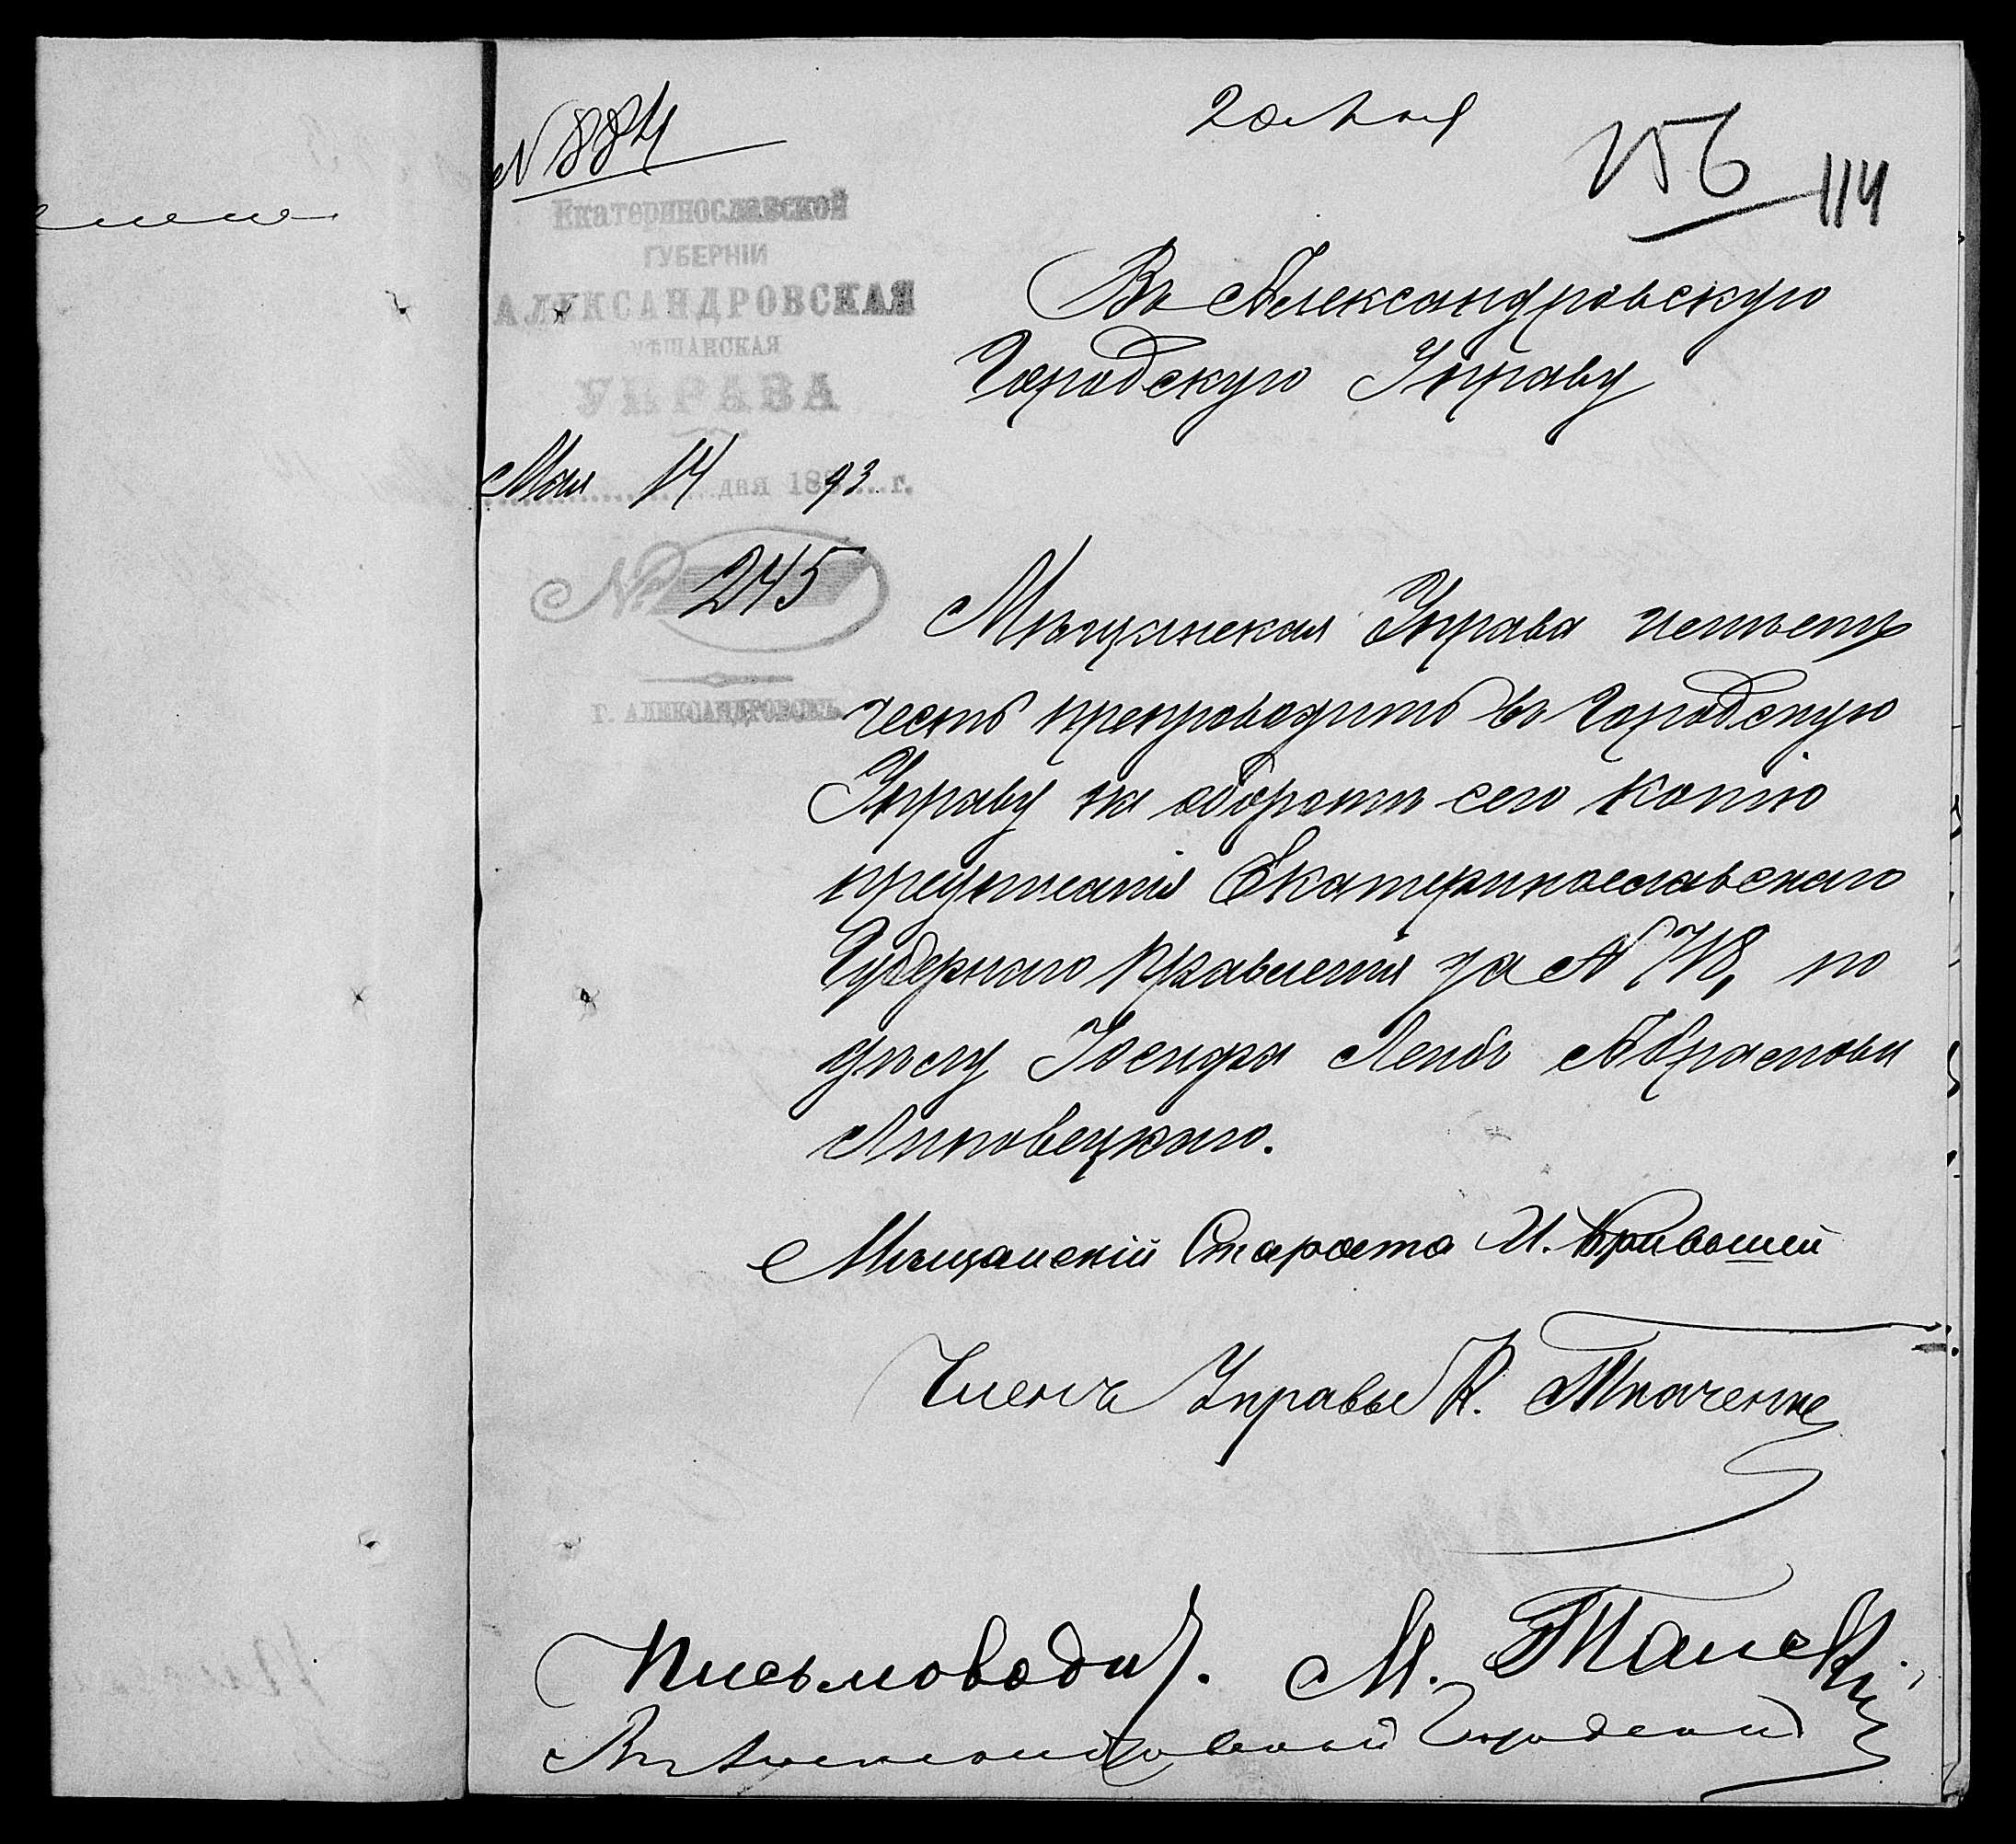 № 884
20 Мая
156
114
Екатеринославской
ГУБЕРНІИ
АЛЕКСАНДРОВСКАЯ
МѢЩАНСКАЯ
УПРАВА
Мая 14 дня 1893 г.
№ 245
г. АЛЕКСАНДРОВСКЪ.
Въ Александровскую
Городскую Управу
Мѣщанская Управа имѣетъ
честь препроводить въ Городскую
Управу на оборотѣ сего копію
предписанія Екатеринославскаго
Губернскаго Правленія за №, по
дѣлу Іосифа Лейбы Абрамова
Липовецкаго.
Мѣщанскій Староста И.
Членъ Управы К. Ткаченко
Письмоводит. М.
Въ Александровской Городской